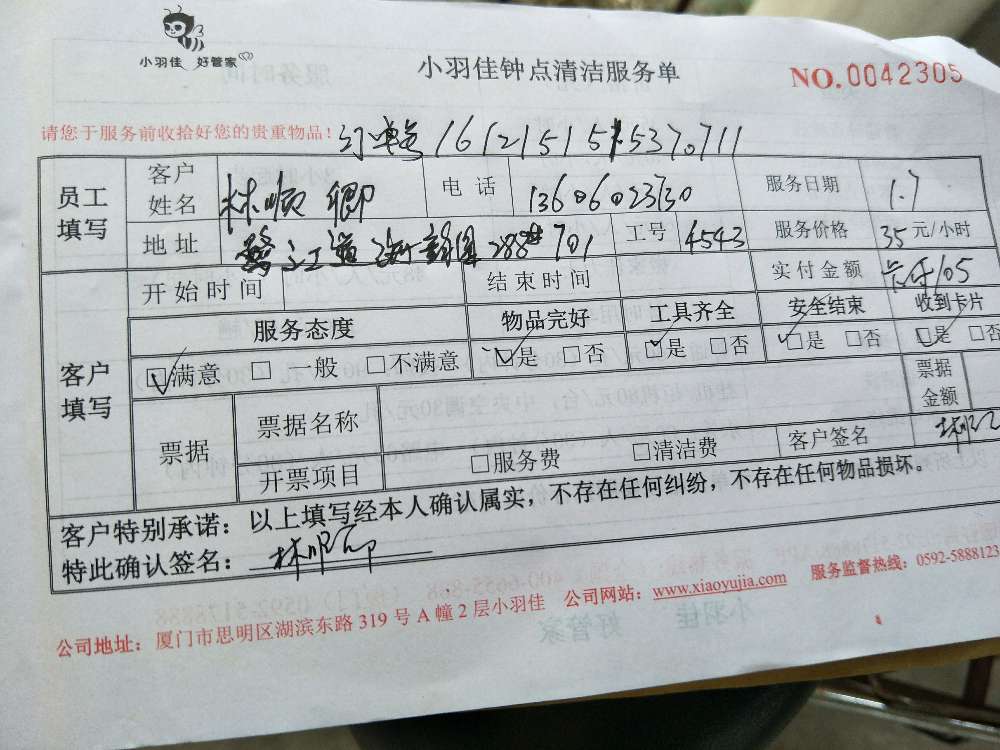 小羽佳 好管家
小羽佳钟点清洁服务单
NO.0042305
请您于服务前收拾好您的贵重物品!
员工填写 客户姓名 林顺卿 电话 13606023730 服务日期 1.7
地址 288# 701 工号 4543 服务价格 35元/小时
开始时间 结束时间 实付金额 105
客户填写 服务态度 物品完好 工具齐全 安全结束 收到卡片
☑满意 □一般 □不满意 ☑是 □否 ☑是 □否 ☑是 □否 ☑是 □否
票据 票据名称 票据金额
开票项目 □服务费 □清洁费 客户签名
客户特别承诺:以上填写经本人确认属实,不存在任何纠纷,不存在任何物品损坏。
特此确认签名:
公司地址:厦门市思明区湖滨东路319号A幢2层小羽佳 公司网站:www.xiaoyujia.com 服务监督热线:0592-5888123